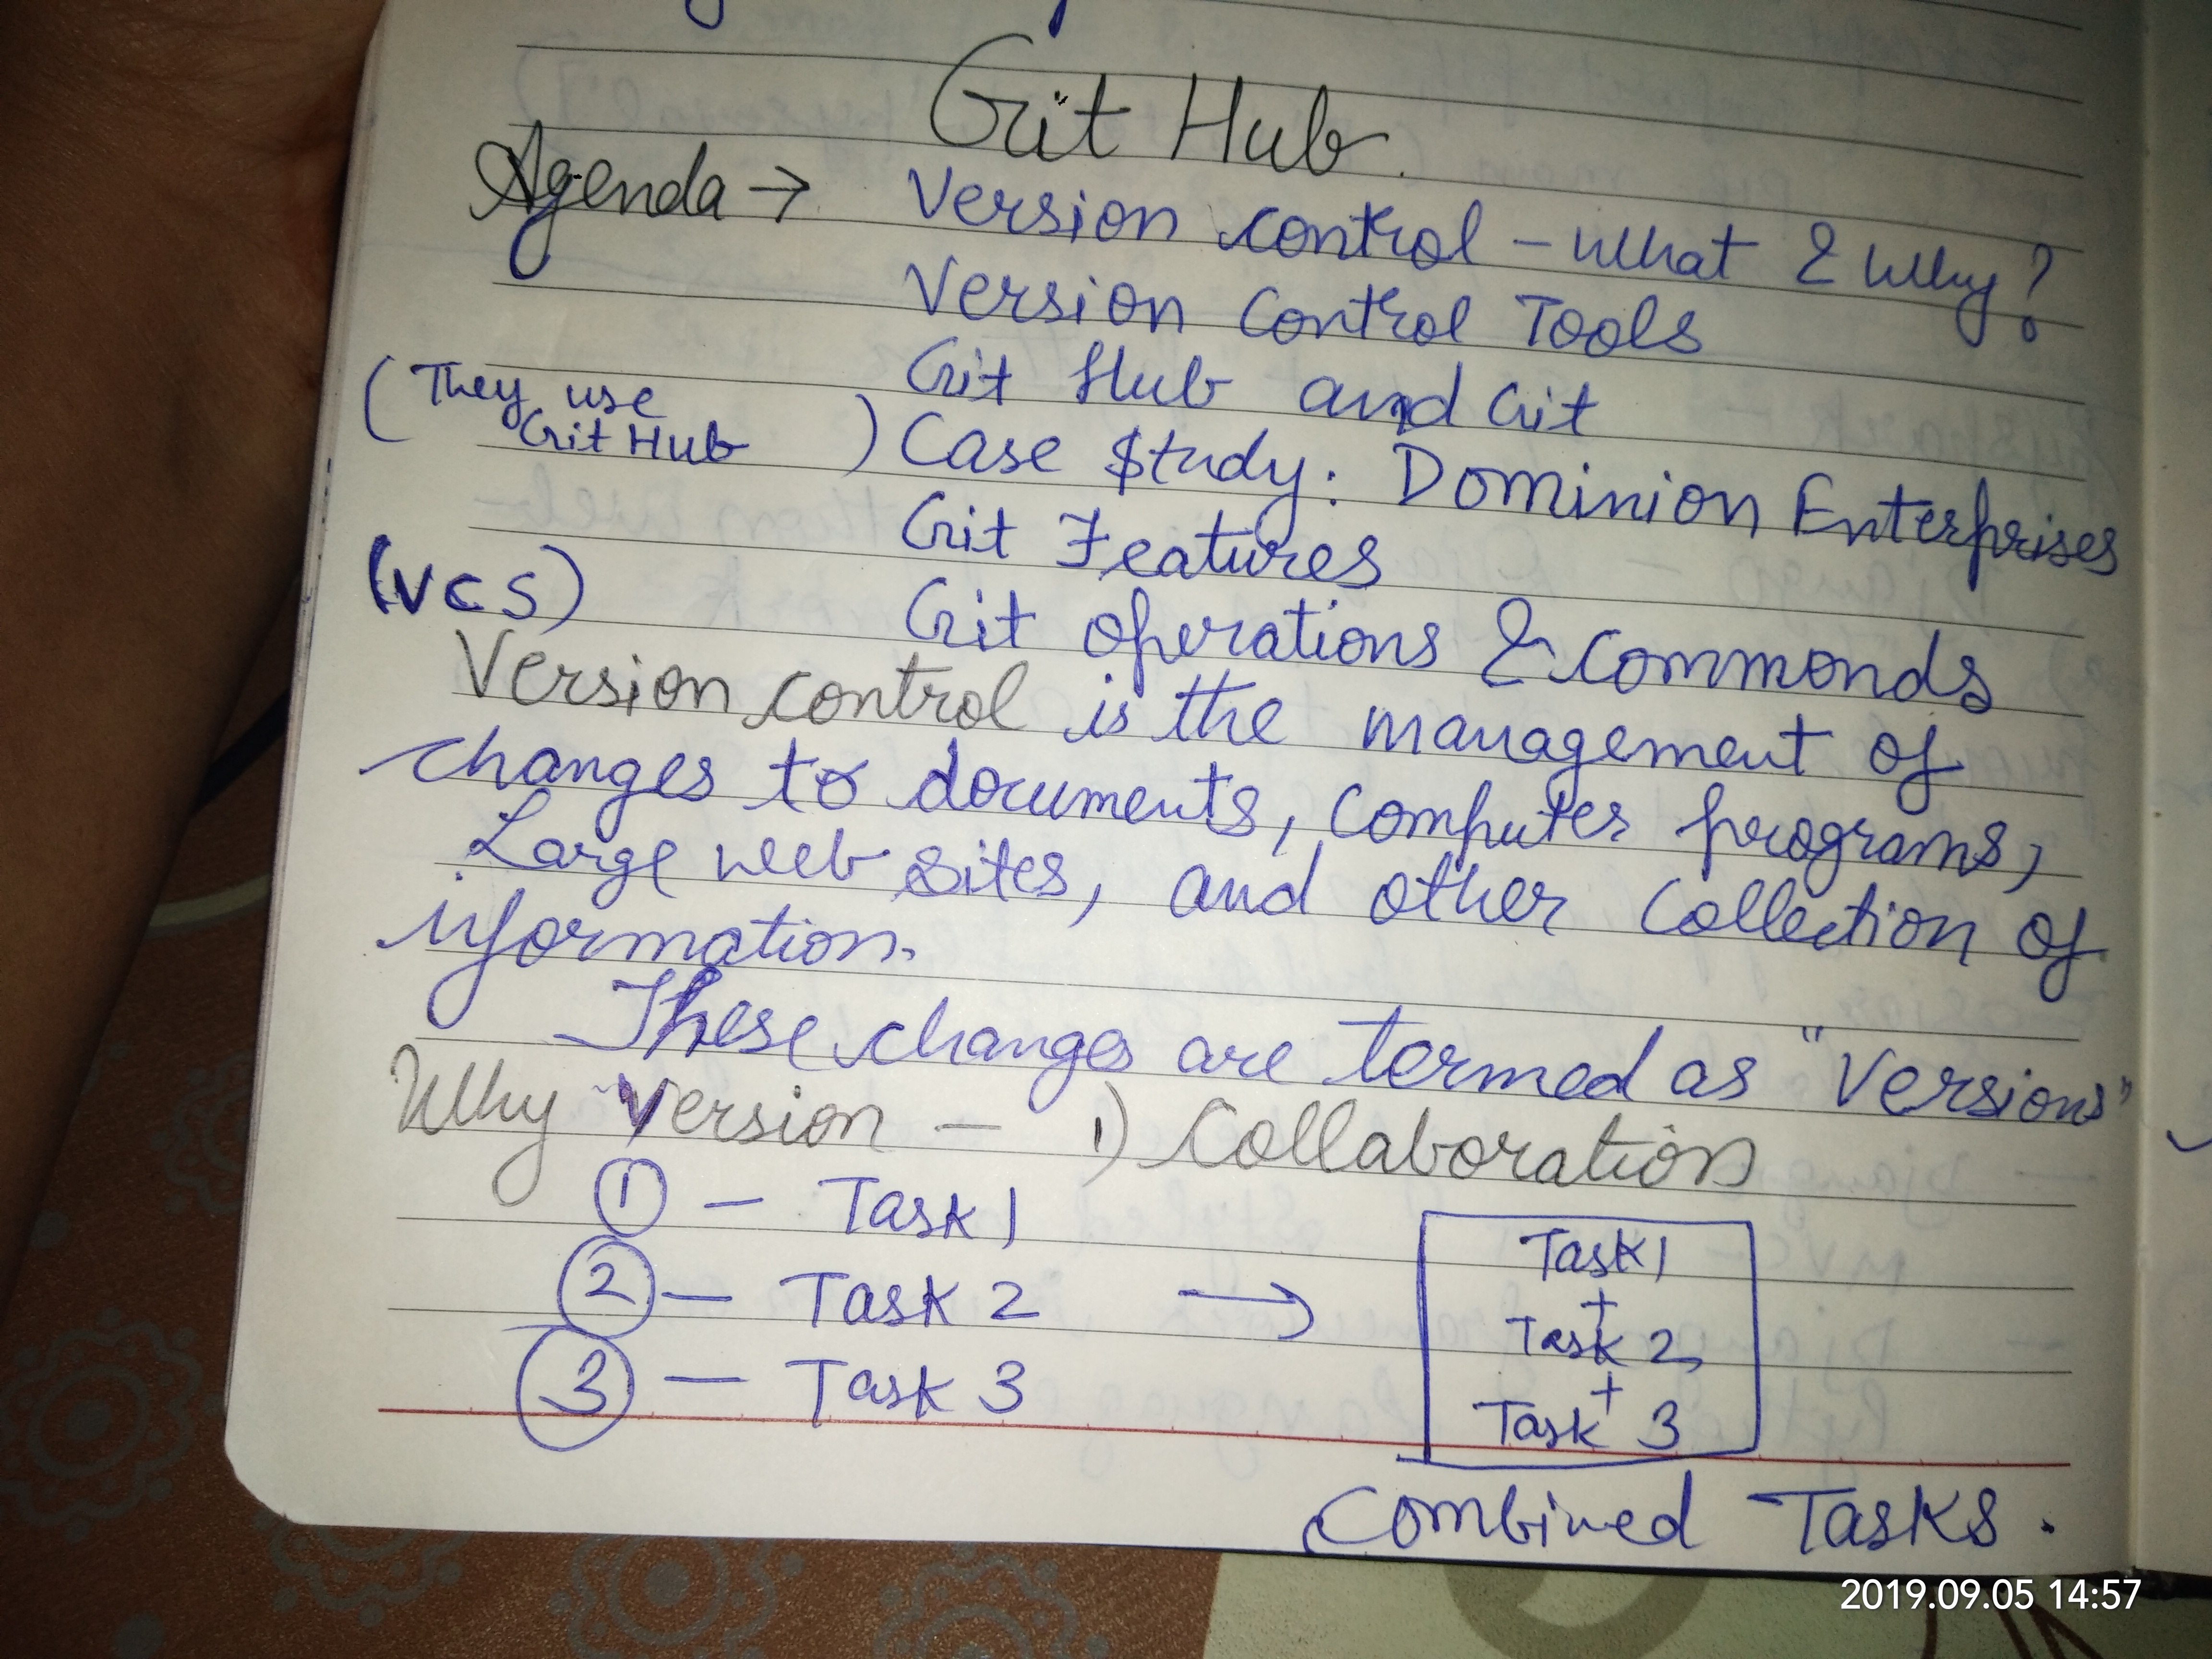 Git Hub.
Agenda → Version control - What & Why?
Version Control Tools
Git Hub and Git
(They use Git Hub) Case Study: Dominion Enterprises
Git Features
(VCS) Git operations & Commonds
Version control is the management of
changes to documents, computer programs,
Large web sites, and other collection of
information.
These changes are termed as "Versions"
Why Version - 1) Collaboration
① - Task 1
② - Task 2 →
③ - Task 3
Task 1
+
Task 2
+
Task 3
Combined Tasks.
2019.09.05 14:57